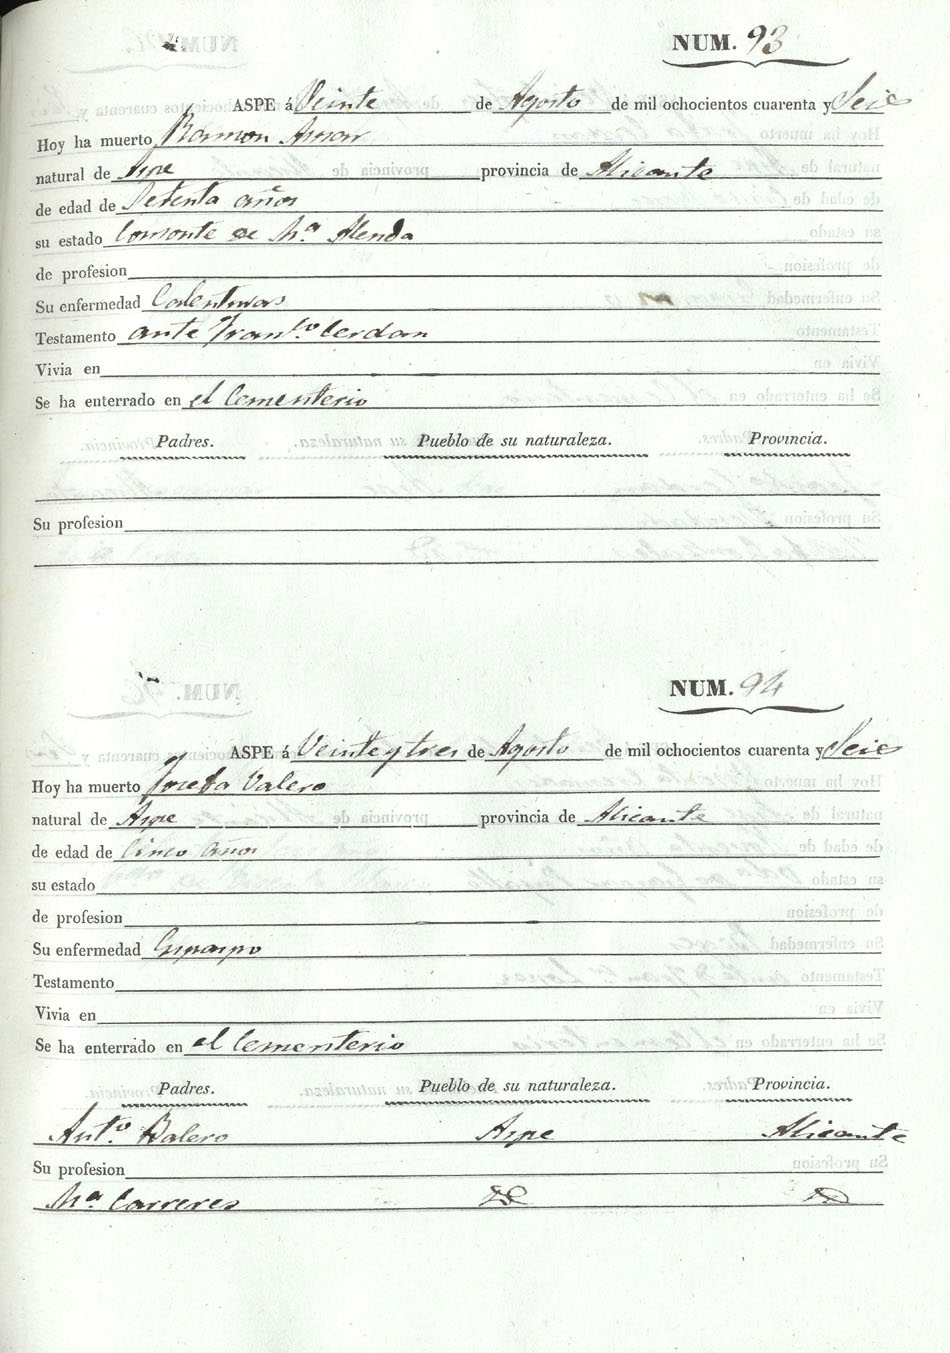 NUM. 93
ASPE á Veinte de Agosto de mil ochocientos cuarenta y Seis
Hoy ha muerto Ramon
natural de Aspe provincia de Alicante
de edad de Setenta años
su estado Consorte de Mª
de profesion
Su enfermedad Calenturas
Testamento ante Franco. Cerdan
Vivia en
Se ha enterrado en el Cementerio
Padres. Pueblo de su naturaleza. Provincia.
Su profesion
NUM. 94
ASPE á Veinte y tres de Agosto de mil ochocientos cuarenta y Seis
Hoy ha muerto Josefa Valero
natural de Aspe provincia de Alicante
de edad de Cinco años
su estado
de profesion
Su enfermedad
Testamento
Vivia en
Se ha enterrado en el Cementerio
Padres. Pueblo de su naturaleza. Provincia.
Anto. Balero Aspe Alicante
Su profesion
Mª Carreres